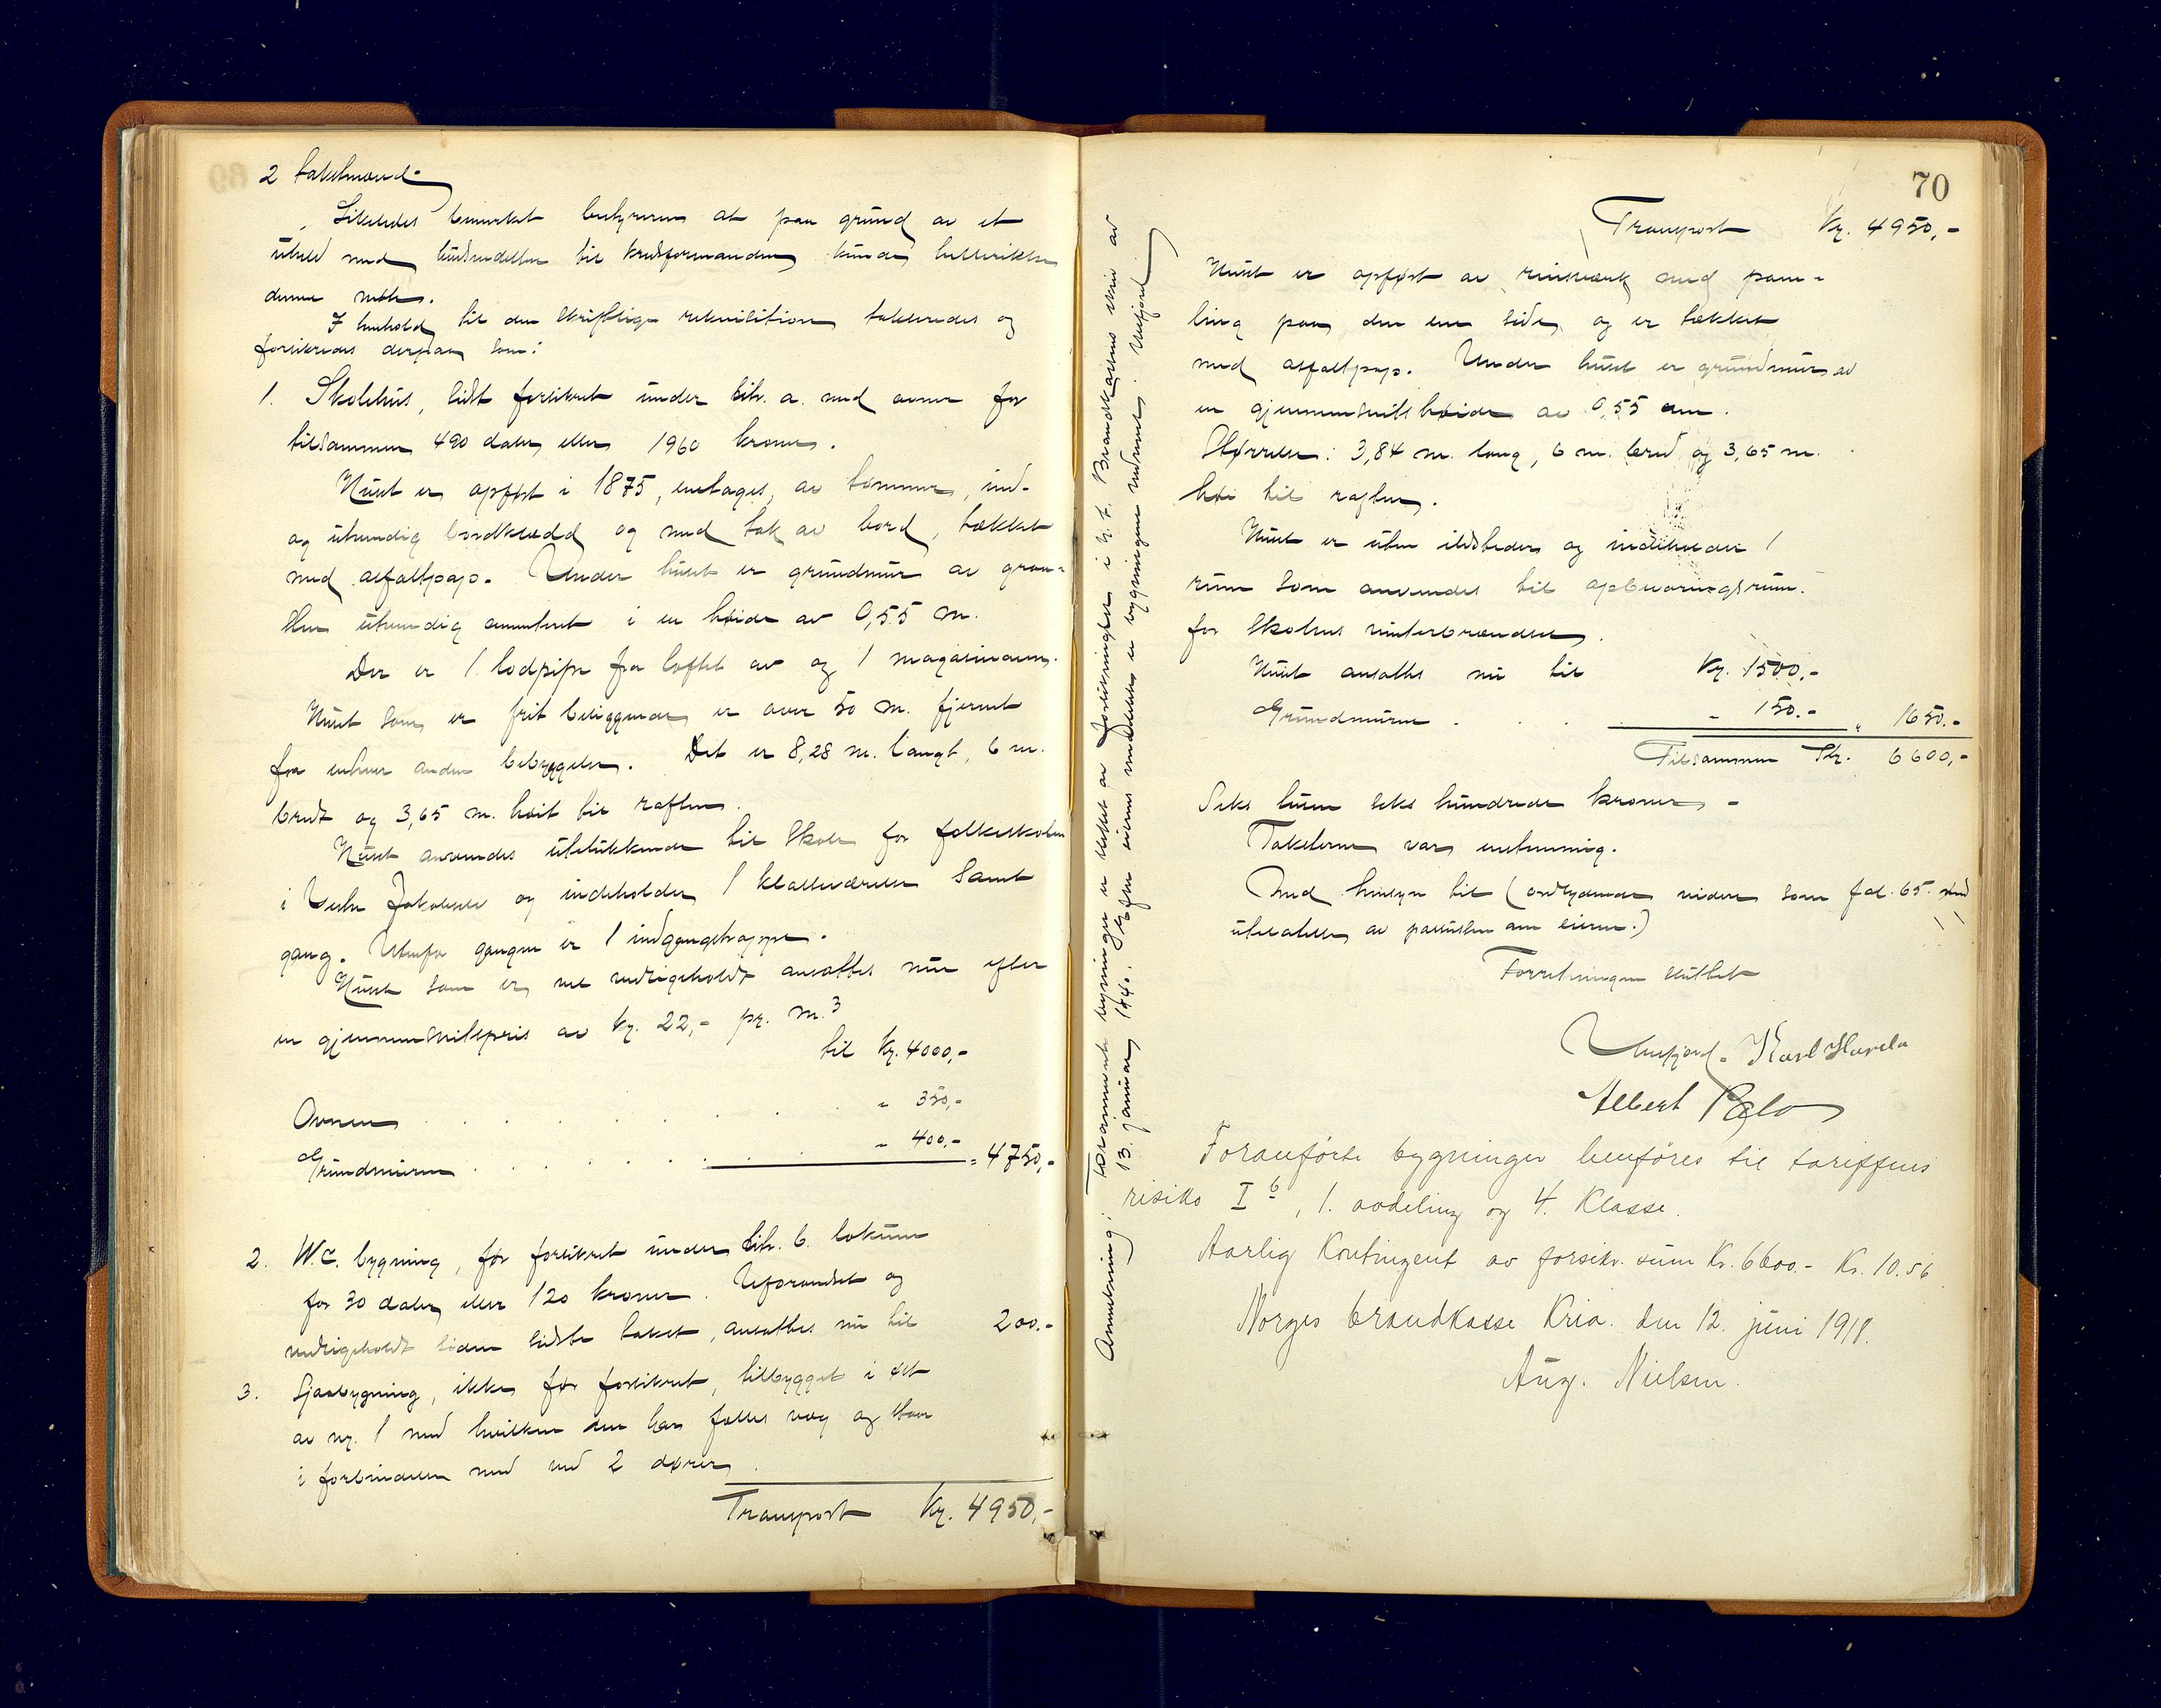 2 takstmænd.
Likeledes bemerket bestyreren at paa grund av et
uheld med budsendelsen til kredsformanden kunde
denne møte.
I henhold til den skriftlige rekvisition takseredes og
forsikredes derpaa som:
1. Skolehus, sidst forsikret under litr. a. med ovner for
tilsammen 490 daler eller 1960 kroner.
Huset er opført i 1875, enetages, av tømmer, ind-
og utvendig bordklædd og med tak av bord, tækket
med asfaltpap. Under huset er grundmur av graa-
sten utvendig cementeret i en høide av 0,55 m.
Der er 1 lodpipe fra loftet av og 1 magasinovn.
Huset som er frit beliggende er over 50 m. fjernet
fra enhver anden bebyggelse. Det er 8,28 m. langt, 6 m.
bredt og 3,65 m. høit til raften.
Huset anvendes utelukkende til skole for folkeskolen
i Jakobselv og indeholder 1 klasseværelse samt
gang. Utenfor gangen er 1 indgangstrappe.
Huset som er vel vedligeholdt ansattes nu efter
en gjennemsnitspris av kr. 22,- pr. m.3
til kr. 4000,-
Ovnen . . . . . . . " 350,-
Grundmuren . . . . . . . " 400.- = 4750,-
2. W.C. bygning, før forsikret under litr. b. lokum
for 30 daler eller 120 kroner. Uforandret og
vedligeholdt siden sidste takst, ansattes nu til 200.-
3. Sjaabygning, ikke før forsikret, tilbygget i øst
av nr. 1 med hvilken den har fælles væg og staar
i forbindelse med ved 2 dører.
Transport Kr. 4950,-
70
Transport Kr. 4950,-
Huset er opført av med pane-
ling paa den ene side og er tækket
med asfaltpap. Under huset er grundmur av
en gjennemsnitshøide av 0,55 cm.
Størrelse: 3,84 m. lang, 6 m. bred og 3,65 m.
høi til raften.
Huset er uten ildsteder og indeholder 1
rum som anvendes til opbevaringsrum
for skolens vinterbrændsel.
Huset ansattes nu til Kr. 1500.-
Grundmuren . . . " 150.- " 1650.-
Tilsammen Kr. 6600,-
Seks tusen seks hundrede kroner -
Taksterne var enstemmig.
Med hensyn til (ordlydende videre som fol. 65 med
utelatelse av passusen om eieren.)
Forretningen sluttet
Karl Havela
Albert Pelo
Foranførte bygninger henføres til tariffens
risiko I b, 1. avdeling og 4. Klasse.
Aarlig Kontingent av forsikr. sum Kr. 6600.- Kr. 10.56
Norges brandkasse Kria. den 12. juni 1918.
Aug. Nielsen.
Anmerkning: Foranævnte bygninger er slettet av forsikringen i h. t. Brandkassens skriv av
13. januar 1940. Efter eierens meddelelse er bygningene nedrevet.